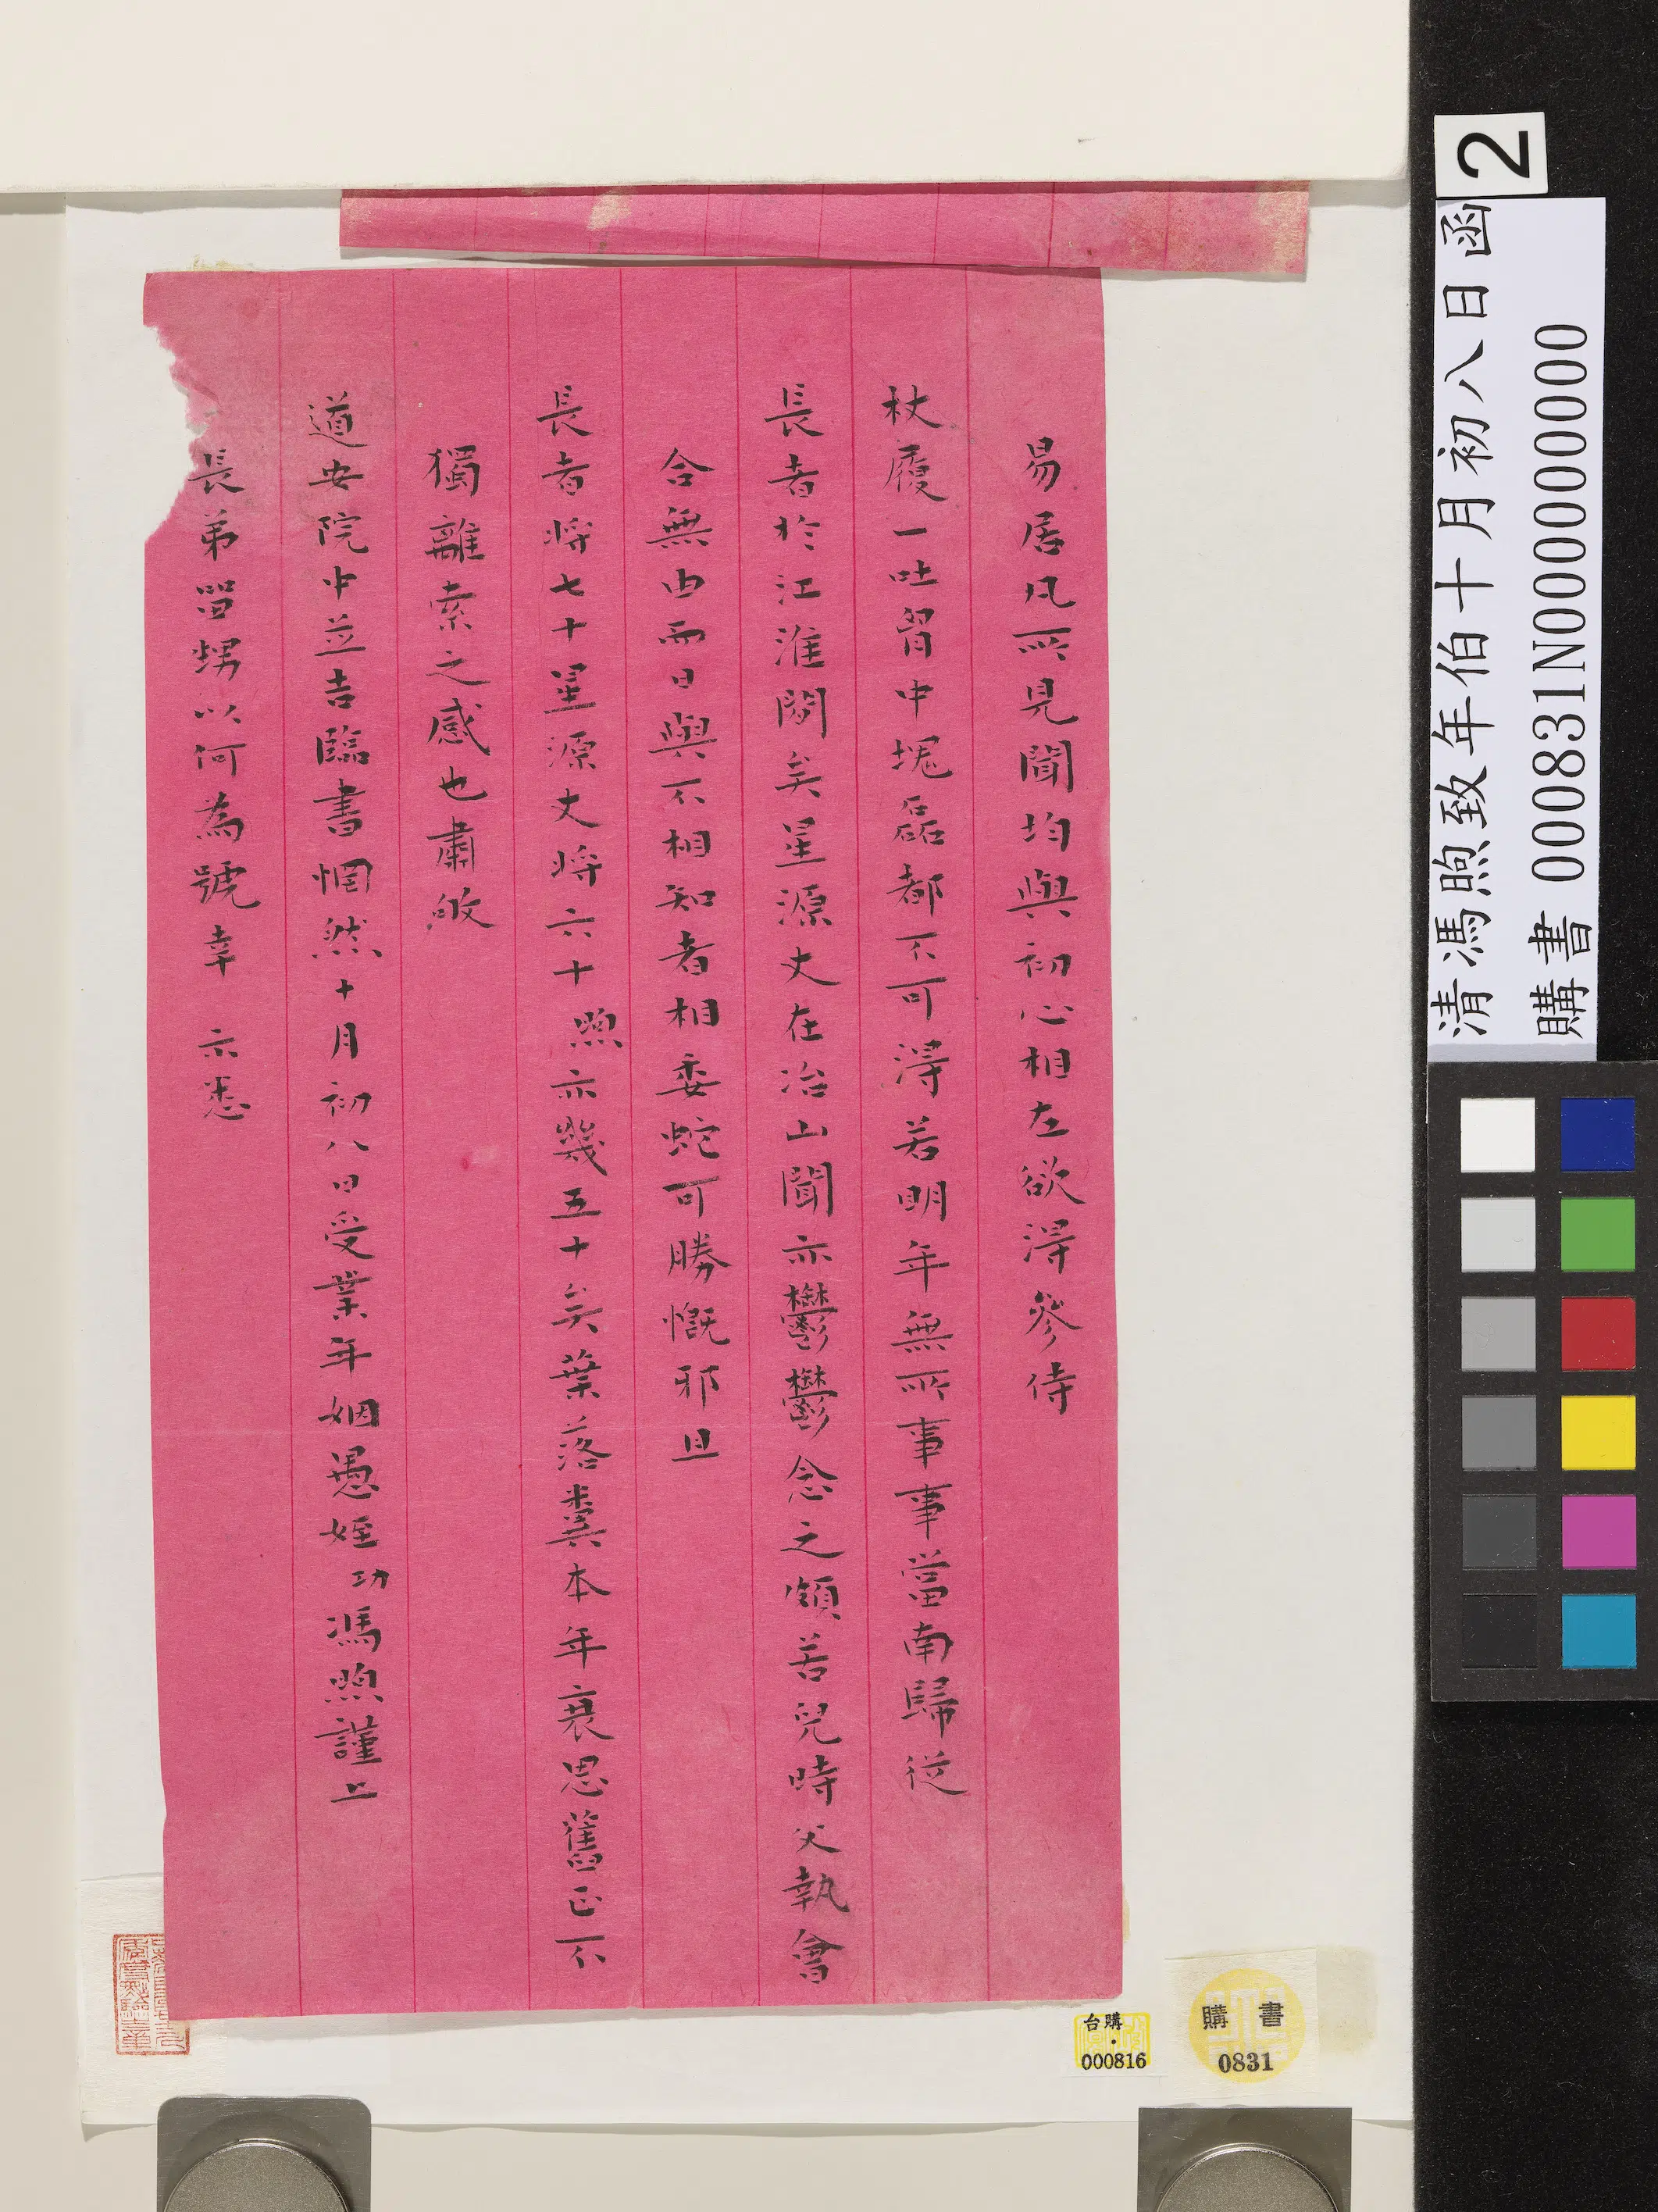 易居凡所見聞均與初心相左欲得參侍
杖履一吐胷中塊磊都不可得若明年無所事事當南歸從
長者於江淮閒矣星源丈在冶山聞亦鬱鬱念之頗若兒時父執會
合無由而日與不相知者相委蛇可勝慨邪且
長者將七十星源丈將六十煦亦幾五十矣葉落糞本年衰思舊正不
獨離索之感也肅啟
道安院中並吉臨書惘然十月初八日受業年姻愚姪功馮煦謹上
長弟畱甥以何為號幸 示悉
2
清馮煦致年伯十月初八日函
購書 000831N000000000
台購・
000816
購書
0831